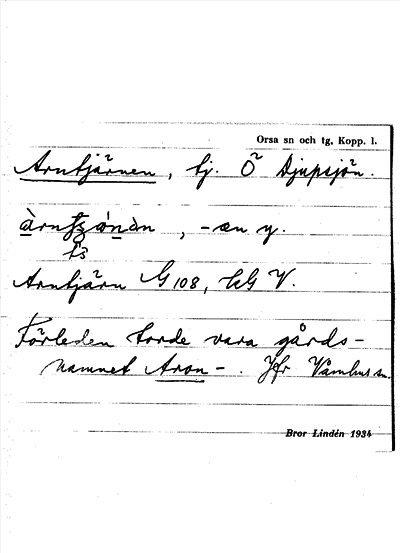 Orsa sn och tg, Kopp. l.
Arntjärnen, tj. Ö Djupsjön.
, -æn y.
Arntjärn G 108, KG V.
Förleden torde vara gårds-
namnet Aron-. Jfr Våmhus sn.
Bror Lindén 1934